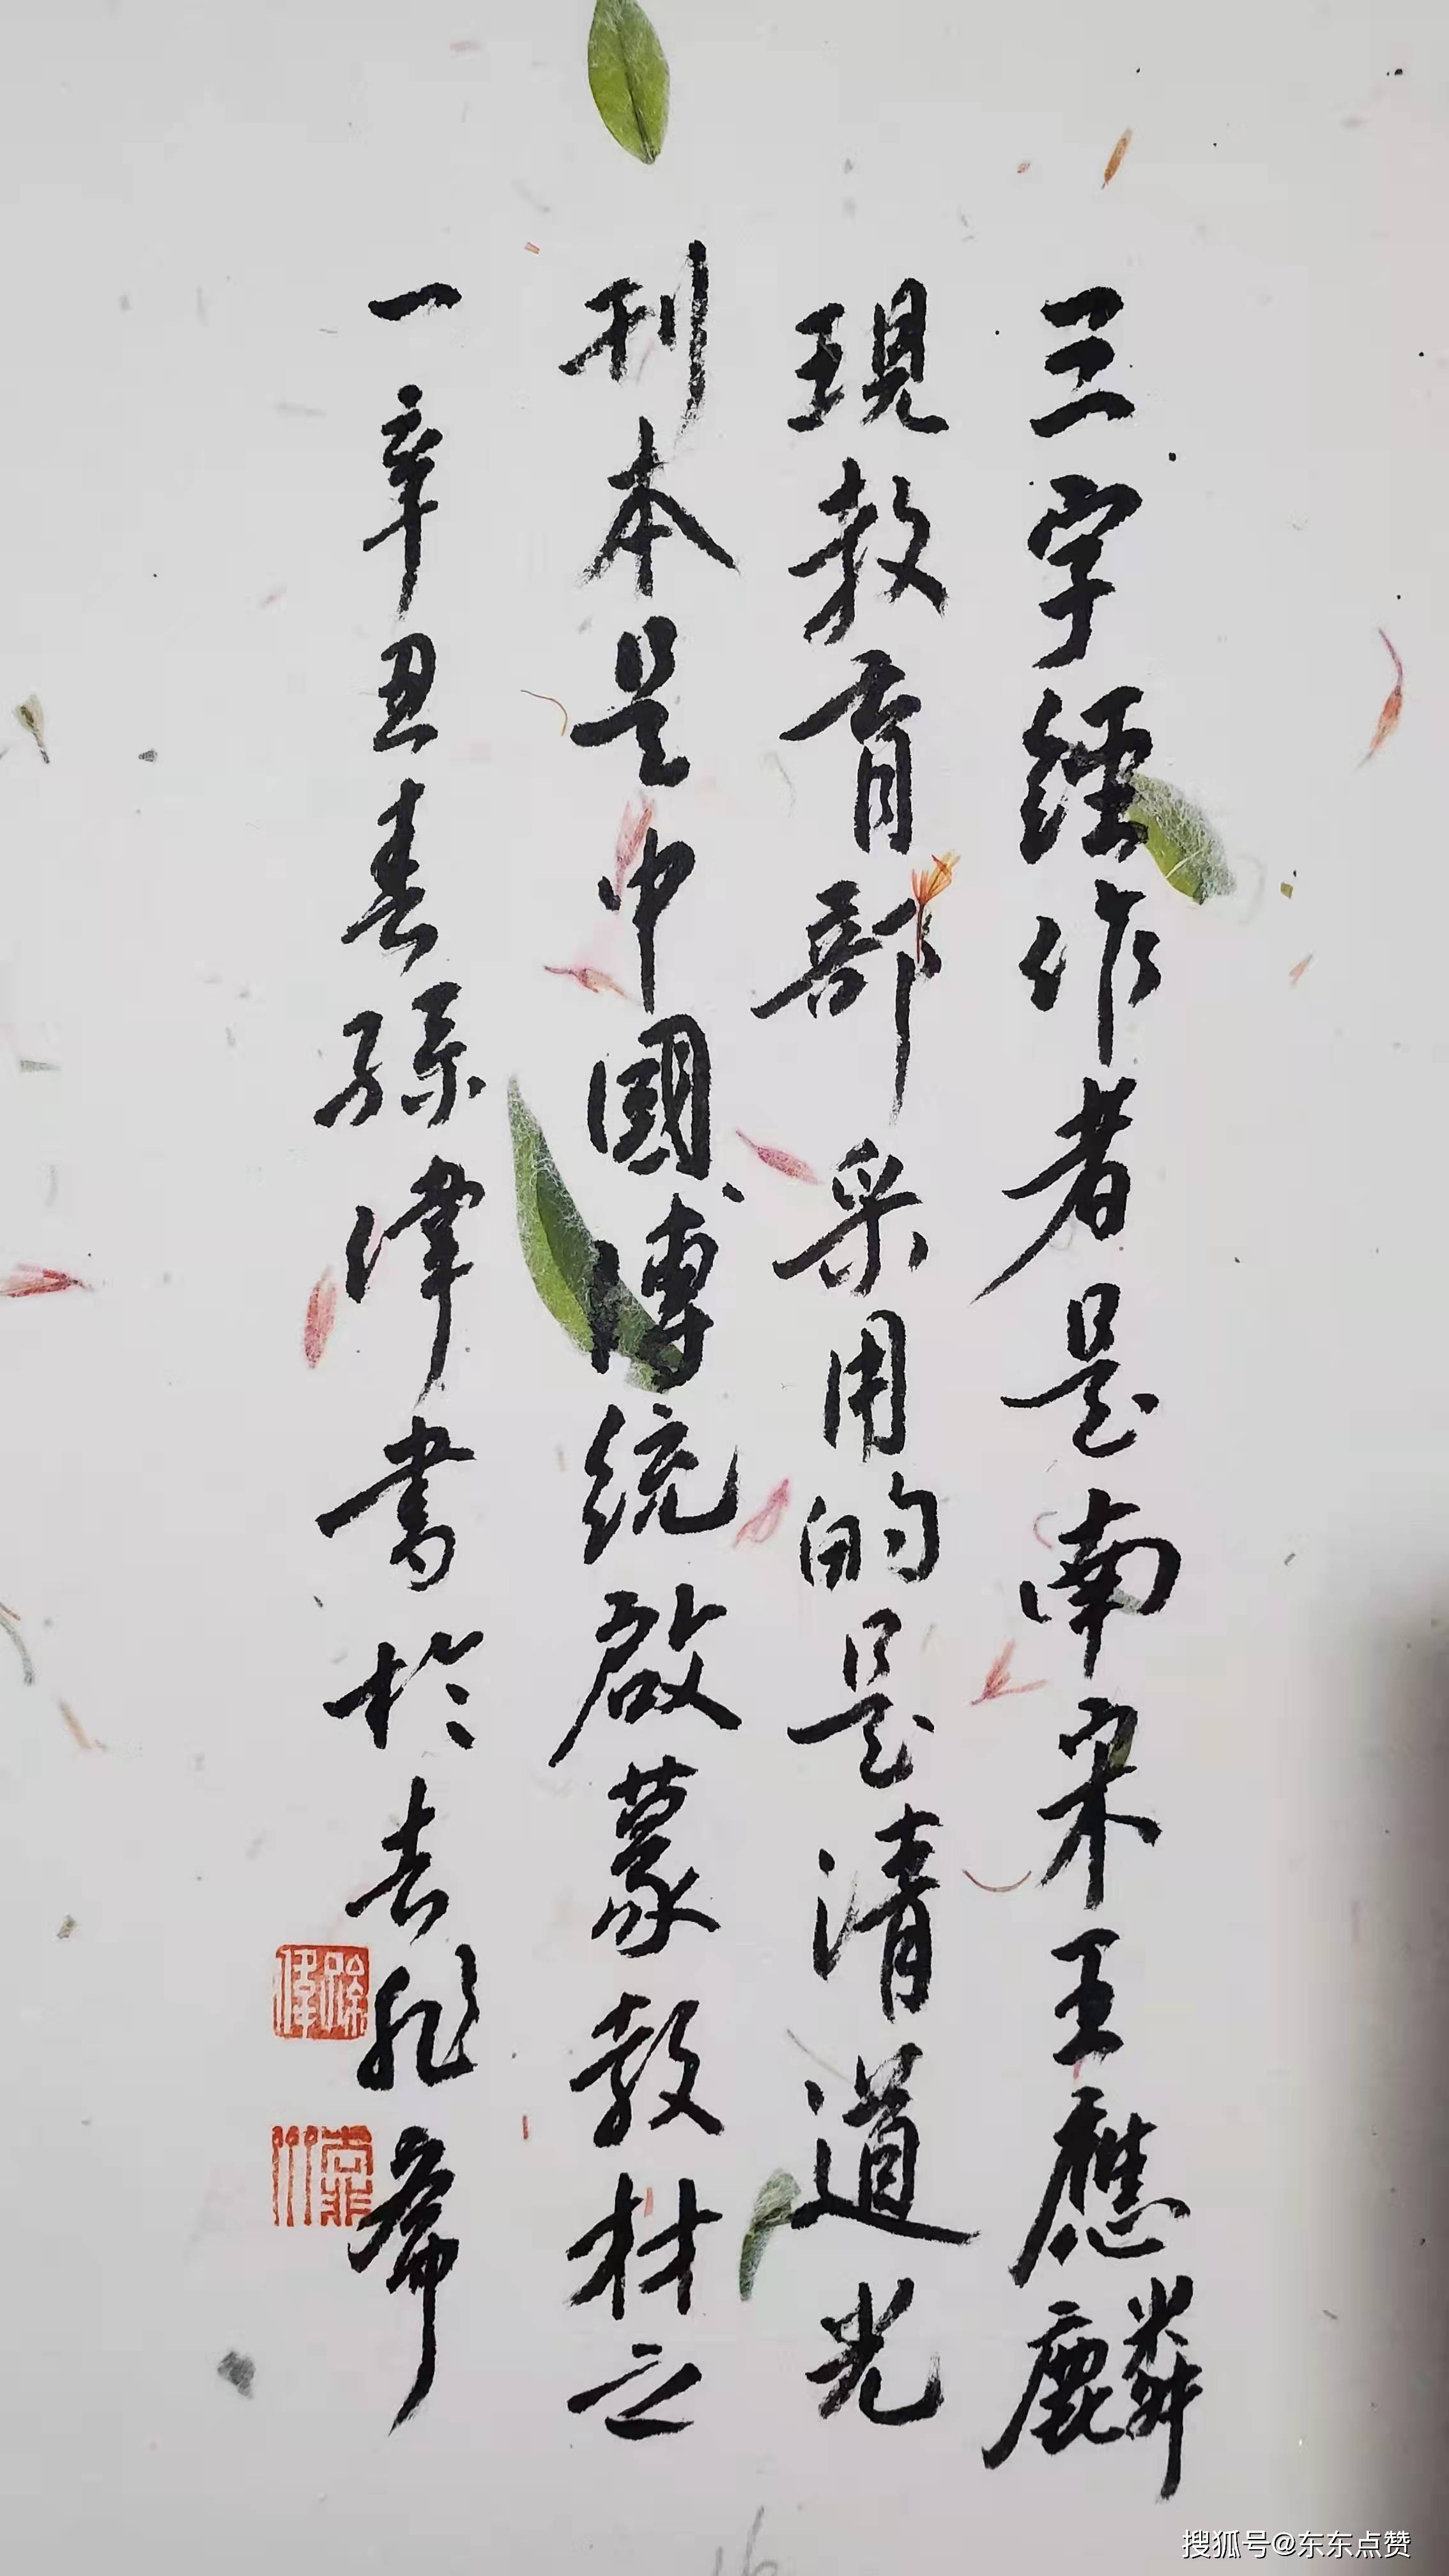 三字經作者是南宋王應麟
現教育部采用的是清道光
刊本是中國傳統啟蒙教材之
一辛丑春孫偉書於去非齋
孫偉
搜狐号@东东点赞